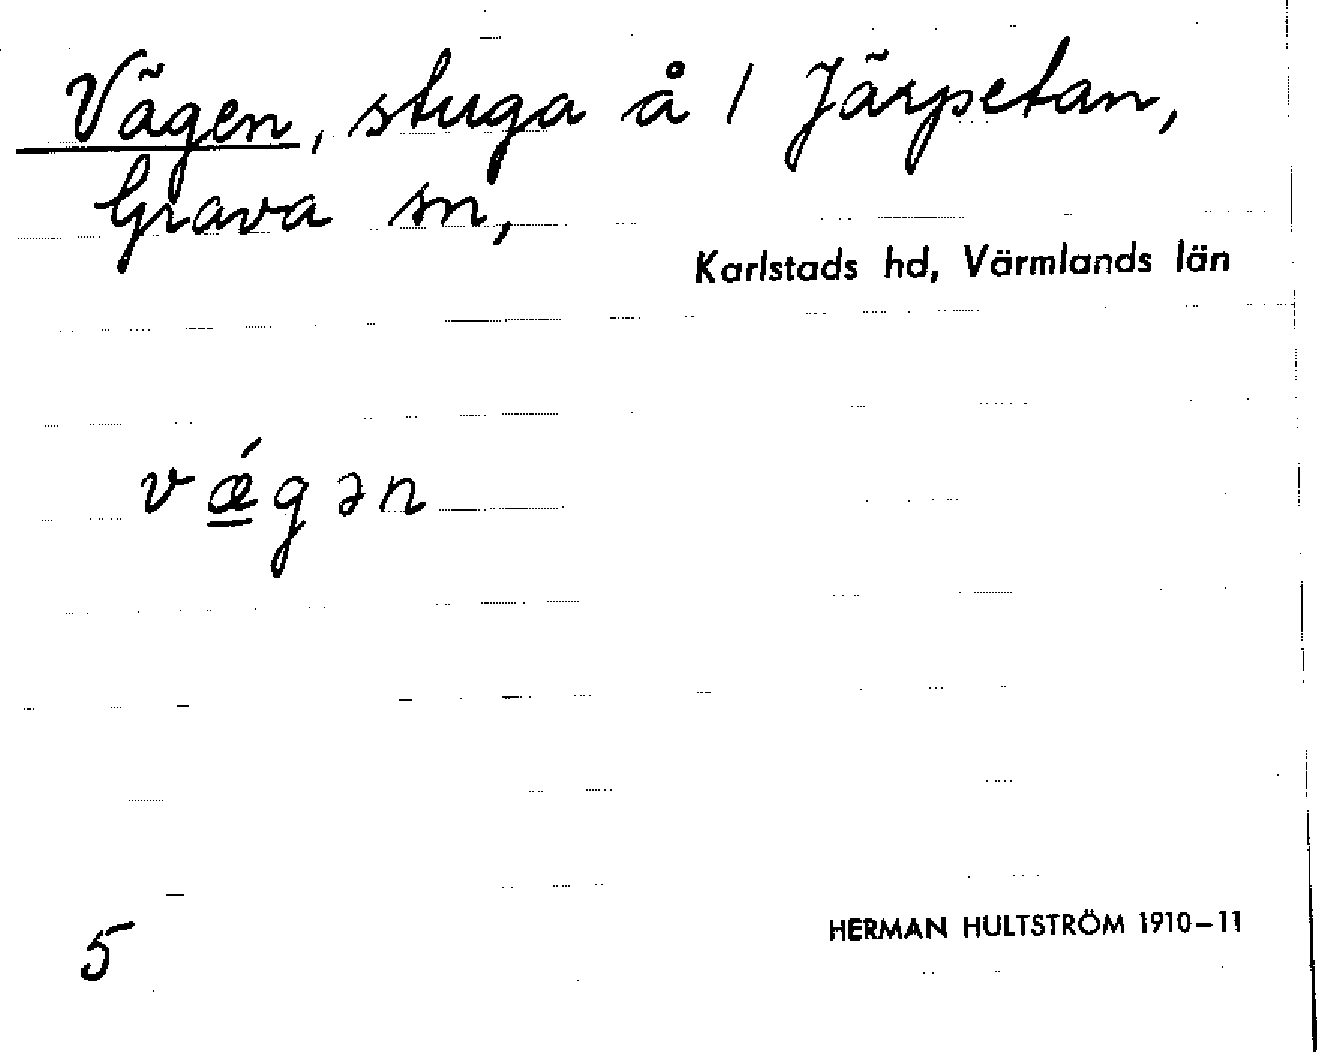 Vägen, stuga å 1 Järpetan,
Grava sn,
Karlstads hd, Värmlands län
vǽgən
5
HERMAN HULTSTRÖM 1910–11